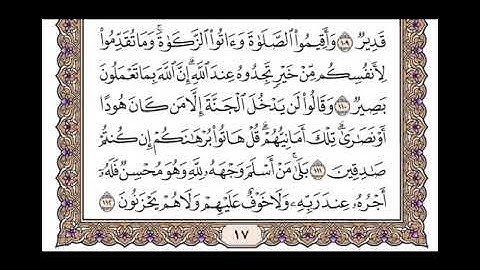 قَدِيرٌ ١٠٩ وَأَقِيمُوا۟ ٱلصَّلَوٰةَ وَءَاتُوا۟ ٱلزَّكَوٰةَۚ وَمَا تُقَدِّمُوا۟
لِأَنفُسِكُم مِّنْ خَيْرٍ تَجِدُوهُ عِندَ ٱللَّهِۗ إِنَّ ٱللَّهَ بِمَا تَعْمَلُونَ
بَصِيرٌ ١١٠ وَقَالُوا۟ لَن يَدْخُلَ ٱلْجَنَّةَ إِلَّا مَن كَانَ هُودًا
أَوْ نَصَٰرَىٰۗ تِلْكَ أَمَانِيُّهُمْۗ قُلْ هَاتُوا۟ بُرْهَٰنَكُمْ إِن كُنتُمْ
صَٰدِقِينَ ١١١ بَلَىٰ مَنْ أَسْلَمَ وَجْهَهُۥ لِلَّهِ وَهُوَ مُحْسِنٌ فَلَهُۥٓ
أَجْرُهُۥ عِندَ رَبِّهِۦ وَلَا خَوْفٌ عَلَيْهِمْ وَلَا هُمْ يَحْزَنُونَ ١١٢
١٧